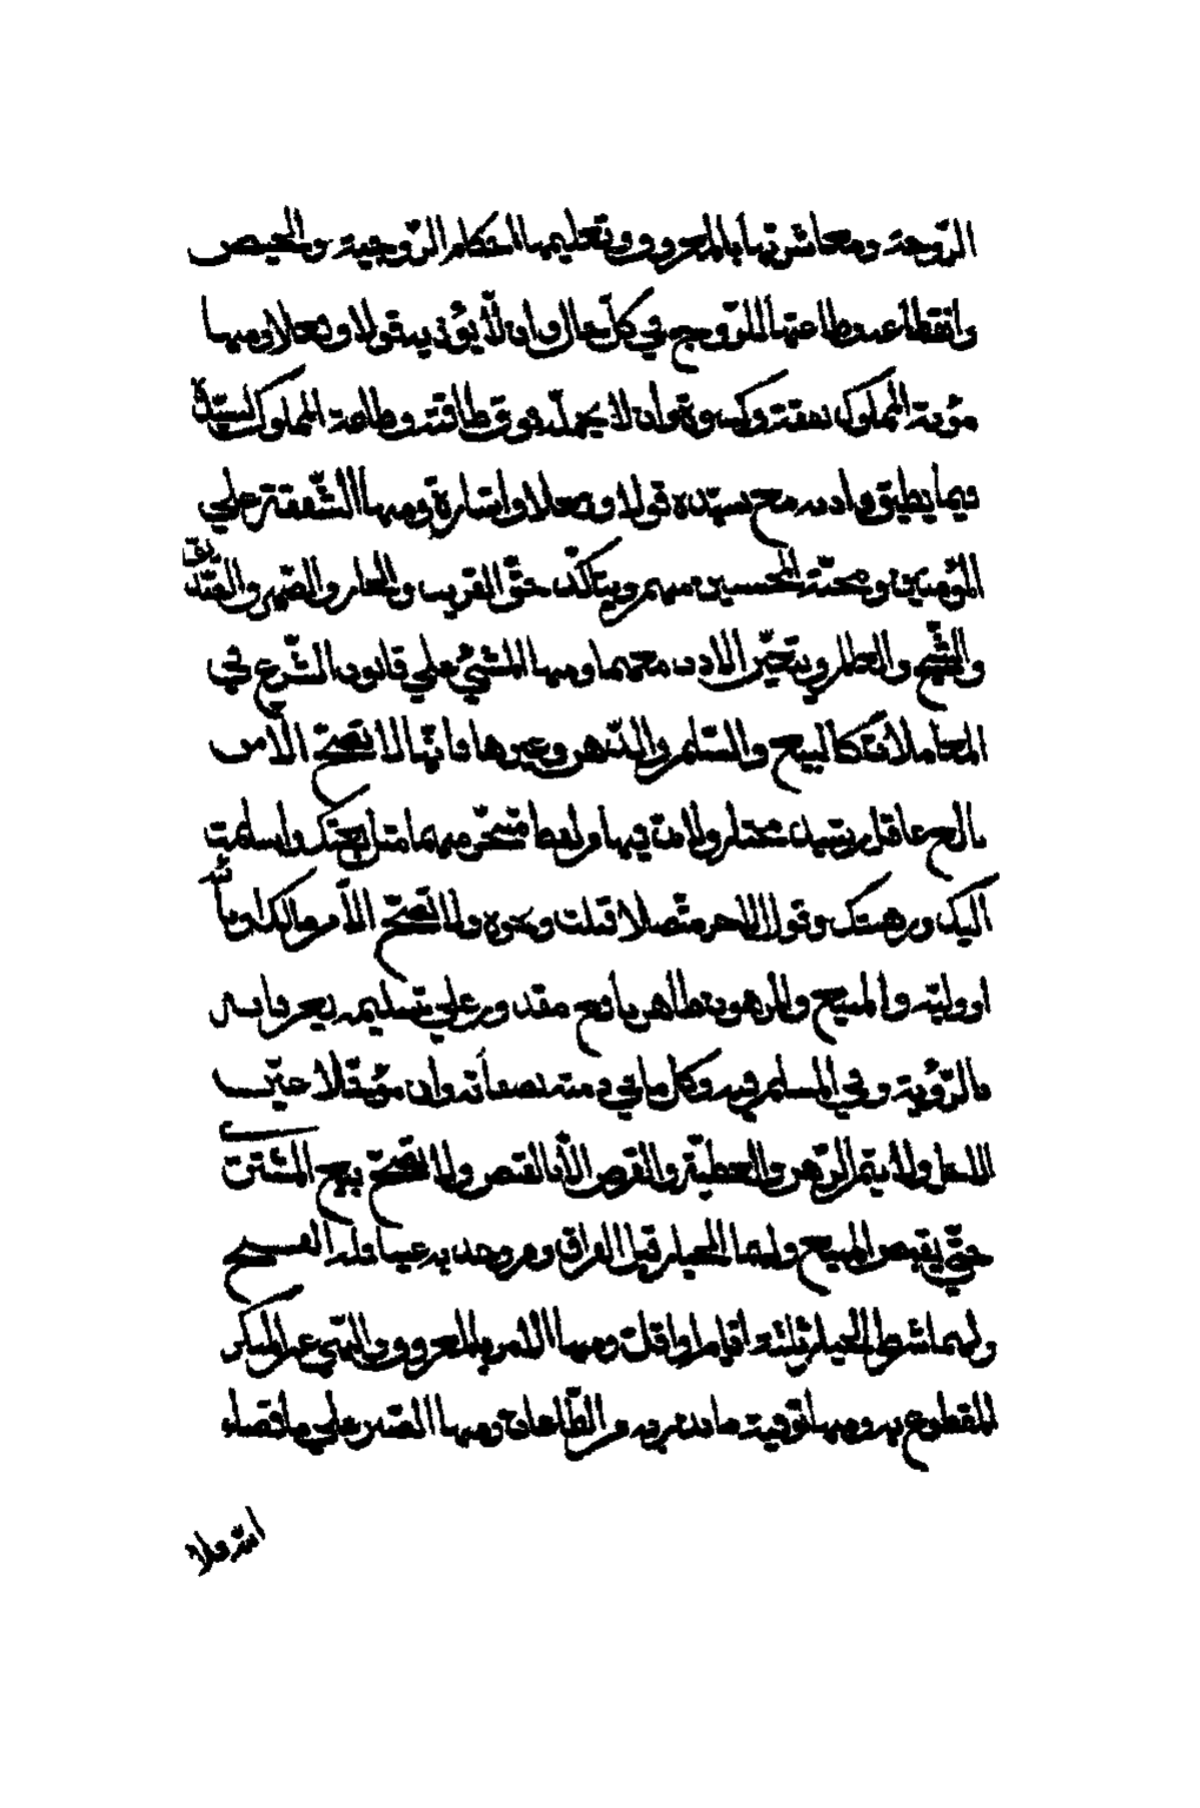 الزّوجة ومعاشرتها بالمعروف وتعليمها احكام الزّوجيّة والحيض
وانقطاعه وطاعتها للزّوج في كلّ حال وان لا يؤذيه قولا وفعلا ومنها
مؤنة المملوك نفقة وكسوة وان لا يحمله فوق طاقته وطاعة المملوك لسيّده
فيما يطيق وادبه مع سيّده قولا وفعلا واشارة ومنها الشّفقة على
المؤمنين ومحبّة المحسنين منهم ويتأكّد حقّ القريب والجار والصّهر والصّديق
والشّيخ والعالم ويتحيّن الادب معهما ومنها المشي على قانون الشّرع في
المعاملات كالبيع والسّلم والرّهن وغيرها فانّها لا تصحّ الّا من
بالغ عاقل رشيد مختار ولا بدّ فيها من لفظ مشعر منهما مثل بعتك واسلمت
اليك ورهنتك وقول الاخر متّصلا قبلت ونحوه ولا تصحّ الّا من مالك او نائبه
او وليّه والمبيع والمرهون طاهر نافع مقدور على تسليمه يعرفانه
بالرّؤية وفي المسلم فيه وكل ما في ذمته بصفاته وان مؤقّتا لا عيّن
المحل ولا يتمّ الرّهن والعطيّة والقرض الّا بالقبض ولا يصحّ بيع المشترى
حتّى يقبض المبيع ولهما الخيار قبل الفراق ومن وجد به عيبا فله الفسخ
ولهما شرط الخيار ثلثة ايّام او اقلّ ومنها الامر بالمعروف والنّهي عن المنكر
المقطوع به ومنها توفية ما نذر به من الطّاعات ومنها الصّبر على ما قضاه
الله فلا